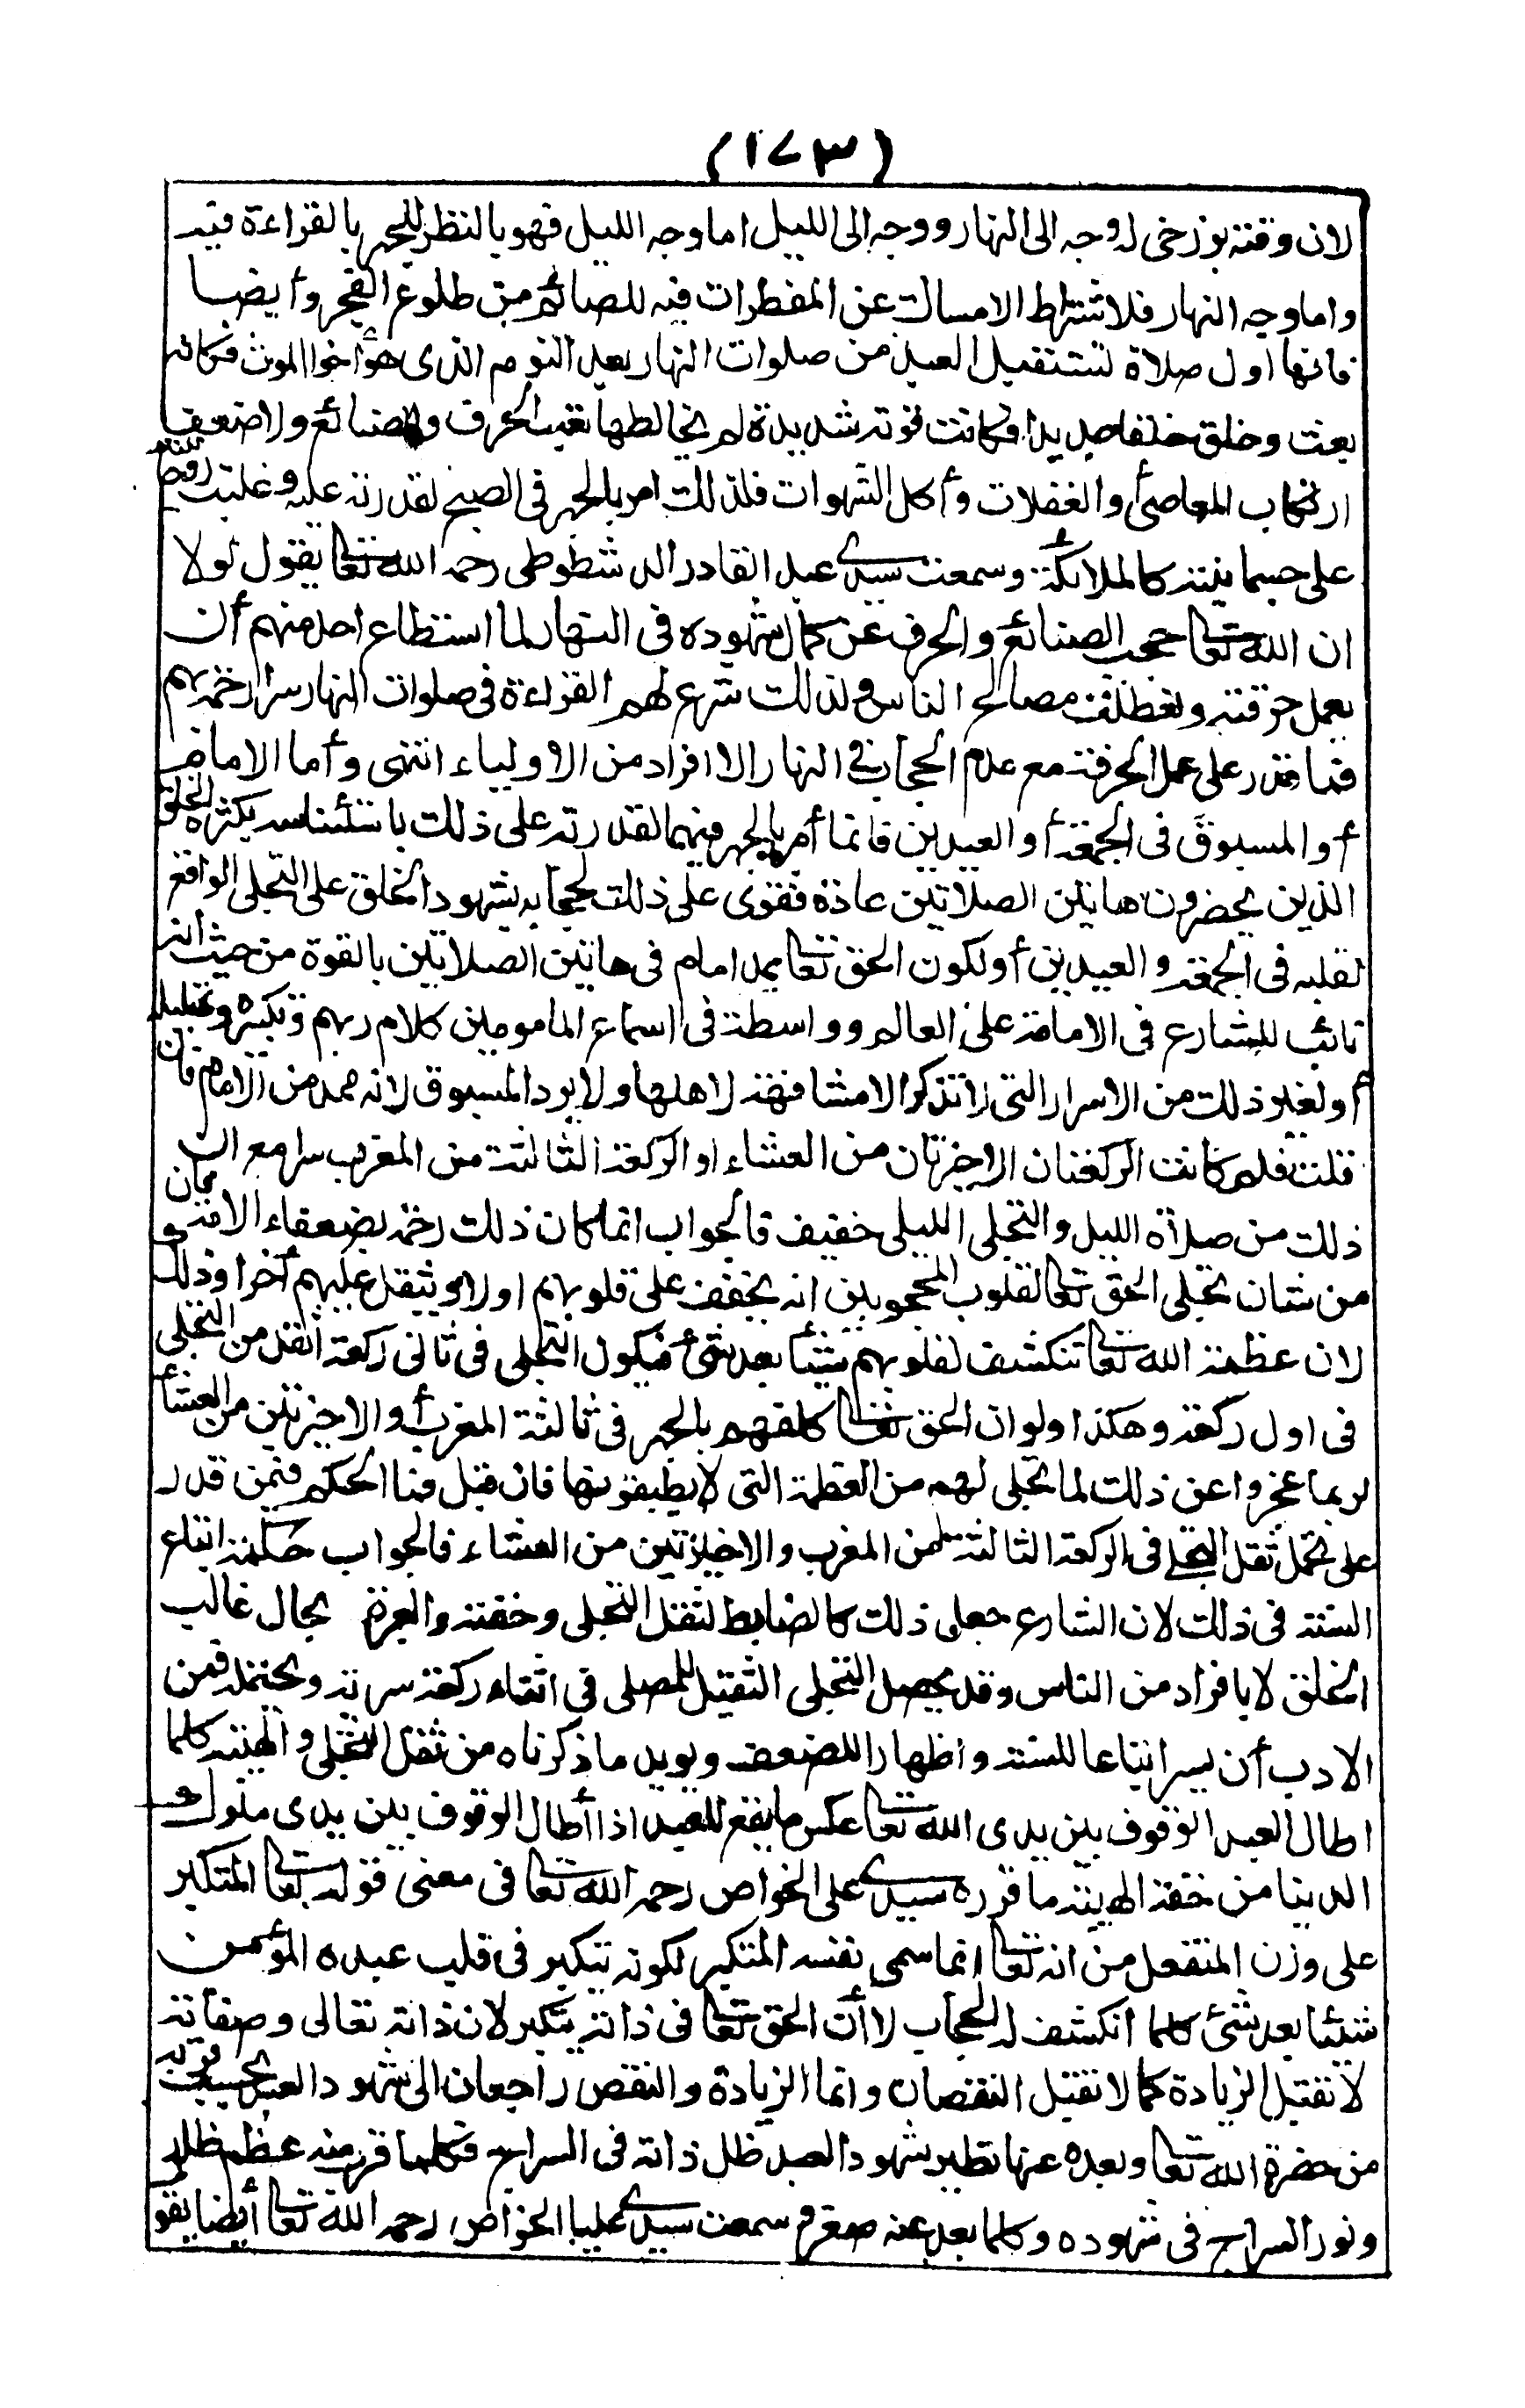 (١٧٣)
لان وقته برزخى له وجه الى النهار ووجه الى الليل اما وجه الليل فهو بالنظر للجهر بالقراءة فيه
واما وجه النهار فلاشتراط الامساك عن المفطرات فيه للصائم من طلوع الفجر وأيضا
فانها اول صلاة تستقبل العبد من صلوات النهار بعد النوم الذى هو أخوا الموت فكانه
بعث وخلق خلقا جديدا وكانت قوته شديدة لم يخالطها تعب الحرف والصنائع ولا ضعف
ارتكاب المعاصى والغفلات وأكل الشهوات فلذلك امر بالجهر فى الصبح لقدرته عليه وغلبت روحانيته
على جسمانيته كالملائكة وسمعت سيدى عبد القادر الدشطوطى رحمه الله تعا يقول لولا
ان الله تعا حجب الصنائع والحرف عن كمال شهوده فى النهار لما استطاع احد منهم أن
يعمل حرفته ولتعطلت مصالح الناس ولذلك شرع لهم القراءة فى صلوات النهار سرا رحمة بهم
فما قدر على عمل الحرفة مع عدم الحجاب فى النهار الا افراد من الاولياء انتهى وأما الامام
أو المسبوق فى الجمعة أو العيدين فانما أمر بالجهر فيهما لقدرته على ذلك باستئناسه بكثرة الخلق
الذين يحضرون هاتين الصلاتين عادة فقوى على ذلك لحجابه بشهود الخلق على التجلى الواقع
لقلبه فى الجمعة والعيدين أو لكون الحق تعا يمد امام فى هاتين الصلاتين بالقوة من حيث انه
نائب للشارع فى الامامة على العالم وواسطة فى اسماع المامومين كلام ربهم وتكبيره
أو لغير ذلك من الاسرار التى لا تذكر الا مشافهة لاهلها ولا يرد المسبوق لانه ممد من الامام فان
قلت فلم كانت الركعتان الاخيرتان من العشاء او الركعة الثالثة من المغرب سرا مع ان
ذلك من صلاة الليل والتجلى الليلى خفيف فالجواب انما كان ذلك رحمة بضعفاء الامة فان
من شان تجلى الحق تعا لقلوب المحجوبين انه يخفف على قلوبهم اولا ويثقل عليهم آخرا وذلك
لان عظمة الله تعا تنكشف لقلوبهم شيئا بعد شئ فيكون التجلى فى ثانى ركعة أثقل من التجلى
فى اول ركعة وهكذا ولو ان الحق تعا كلفهم بالجهر فى ثالثة المغرب أو الاخيرتين من العشأ
لربما عجزوا عن ذلك لما تجلى لهم من العظمة التى لا يطيقونها فان قيل فما الحكم فيمن قدر
على تحمل ثقل التجلى فى الركعة الثالثة من المغرب والاخيرتين من العشاء فالجواب حكمه اتباع
السنة فى ذلك لان الشارع جعل ذلك كالضابط لثقل التجلى وخفته والعبرة بحال غالب
الخلق لا بافراد من الناس وقد يحصل التجلى الثقيل للمصلى فى اثناء ركعة سرية ويحتمله فمن
الادب أن يسر اتباعا للسنة واظهارا للضعف ويويد ما ذكرناه من ثقل التجلى والهيبة كلما
اطال العبد الوقوف بين يدى الله تعا عكس ما يقع للعبد اذا أطال الوقوف بين يدى ملوك
الدينا من خفة الهيبة ما قرره سيدى على الخواص رحمه الله تعا فى معنى قوله تعا المتكبر
على وزن المتفعل من انه تعا انما سمى نفسه المتكبر لكونه يتكبر فى قلب عبده المؤمن
شئيا بعد شئ كلما انكشف له الحجاب لا أن الحق تعا فى ذاته يتكبر لان ذاته تعالى وصفاته
لا تقبل الزيادة كما لا تقبل النقصان وانما الزيادة والنقص راجعان الى شهود العبد بحسب قربه
من حضرة الله تعا وبعده عنها نظير شهود العبد ظل ذاته فى السراج فكلما قرب منه عظم ظله
ونور السراج فى شهوده وكلما بعد عنه صغر وسمعت سيدى عليا الخواص رحمه الله تعا أيضا يقول